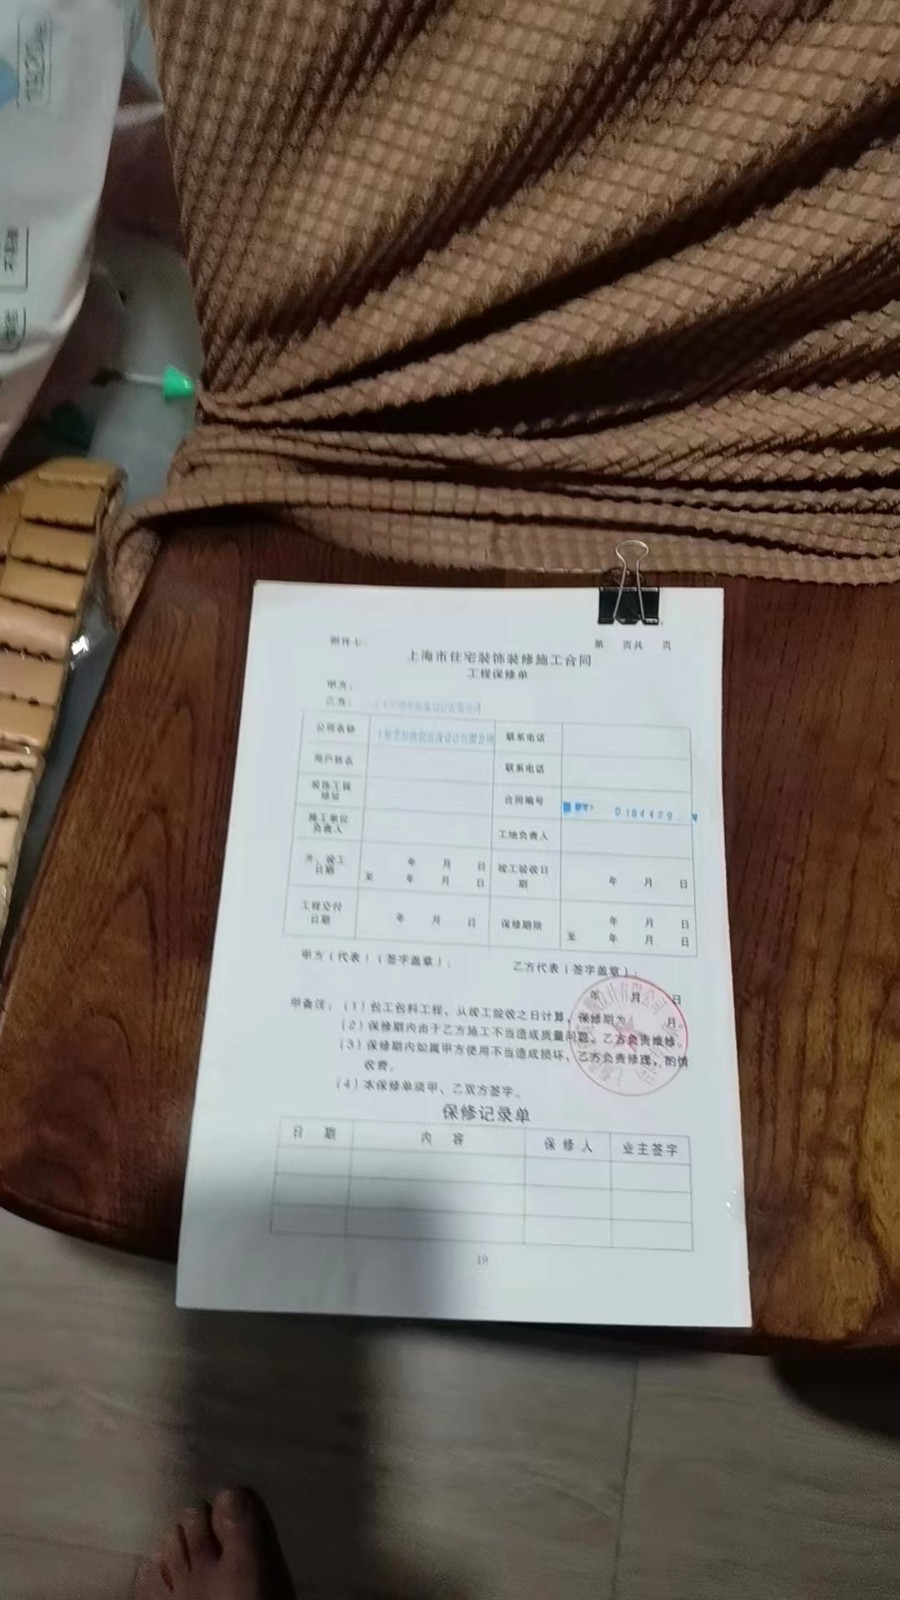 上海市住宅装饰装修施工合同
第 页共 页
工程保修单
甲方：
乙方：
公司名称 联系电话
用户姓名 联系电话
装饰工程地址 合同编号 0184429
施工单位负责人 工地负责人
开、竣工日期 年 月 日 至 年 月 日 竣工验收日期 年 月 日
工程交付日期 年 月 日 保修期限 年 月 日 至 年 月 日
甲方（代表）（签字盖章）： 乙方代表（签字盖章）：
年 月 日
备注：（1）包工包料工程、从竣工验收之日计算，保修期为 月。
（2）保修期内由于乙方施工不当造成质量问题，乙方负责维修。
（3）保修期内如属甲方使用不当造成损坏，乙方负责修理，酌情
收费。
（4）本保修单须甲、乙双方签字。
保修记录单
日 期 内 容 保 修 人 业主签字
19